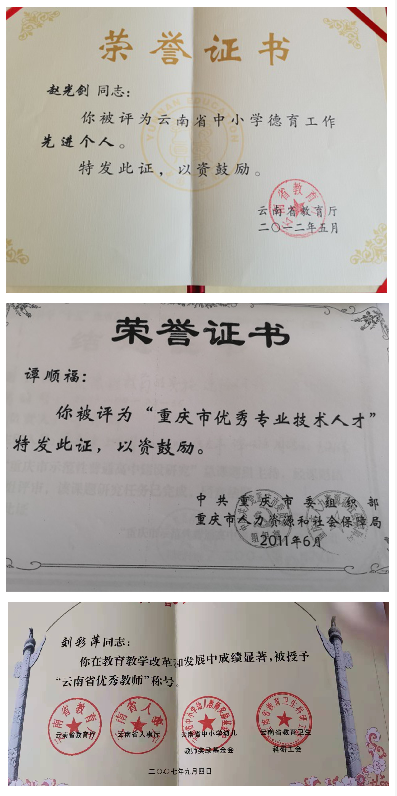 荣誉证书
赵光剑 同志：
你被评为云南省中小学德育工作
先进个人。
特发此证，以资鼓励。
云南省教育厅
二〇一二年五月
荣誉证书
谭顺福：
你被评为“重庆市优秀专业技术人才”
特发此证，以资鼓励。
中共重庆市委组织部
重庆市人力资源和社会保障局
2011年6月
刘彩萍同志：
你在教育教学改革和发展中成绩显著，被授予
“云南省优秀教师”称号。
云南省教育厅 云南省人事厅 云南省中小学幼儿 云南省教育卫生
教师奖励基金会 科研工会
二〇〇七年九月四日